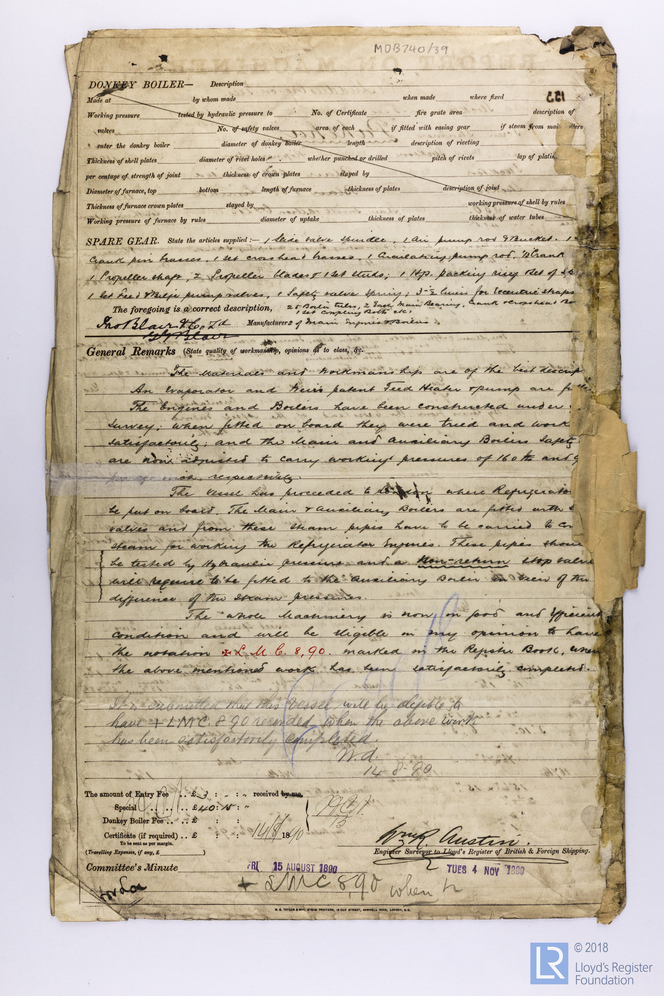 MDB740/39
DONKEY BOILER— Description
Made at by whom made when made where fixed
Working pressure tested by hydraulic pressure to No. of Certificate fire grate area description of
valves No. of safety valves area of each if fitted with easing gear if steam from main
enter the donkey boiler diameter of donkey boiler length description of riveting
Thickness of shell plates diameter of rivet holes whether punched or drilled pitch of rivets lap of plating
per centage of strength of joint thickness of crown plates stayed by
Diameter of furnace, top bottom length of furnace thickness of plates description of joint
Thickness of furnace crown plates stayed by working pressure of shell by rules
Working pressure of furnace by rules diameter of uptake thickness of plates thickness of water tubes
SPARE GEAR. State the articles supplied :— 1 Slide valve spindle, 1 Air pump rod & Bucket. 1
Crank pin brasses, 1 set crosshead brasses, 1 Circulating pump rod, ½ Crank
1 Propeller shaft, 2 Propeller blades & 1 set studs; 1 H.p. packing ring set of
1 set Feed & Bilge pump valves, 1 Safety valve spring; 3-½ liners for Eccentric straps
The foregoing is a correct description, 25 Boiler tubes, 2 Main Bearing, Crank & Crosshead
1 Set Coupling Bolts etc.
Jno. Blair & Co. Ld Manufacturers of Main Engines & Boilers.
G Y Blair
General Remarks (State quality of workmanship, opinions as to class, &c.
The Materials and Workmanship are of the best descrip
An Evaporator and Weir's patent Feed Heater & pump are
The Engines and Boilers have been constructed under
Survey; when fitted on board they were tried and work
satisfactorily, and the Main and Auxiliary Boilers Safety
are now adjusted to carry working pressures of 160 lb and
respectively.
The Vessel has proceeded to where Refrigerator
be put on board. The Main & Auxiliary Boilers are fitted with
valves and from these steam pipes have to be carried to
steam for working the Refrigerator Engines. These pipes should
be tested by Hydraulic pressure and a Non-return stop valve
will require to be fitted to the Auxiliary Boiler in view of the
difference of the steam pressures.
The whole Machinery is now in good and efficient
condition and will be eligible in my opinion to have
the notation ✠ L.M.C. 8,90 marked in the Register Book, when
the above mentioned work has been satisfactorily completed.
It is submitted that this vessel will be eligible to
have + LMC 8 90 recorded when the above work
has been satisfactorily completed
14-8-90
The amount of Entry Fee .. £ 3 : - : " received by me,
Special .. .. £ 40 : 15 : "
Donkey Boiler Fee .. £ : :
Certificate (if required) .. £ : : 14/8 1890
To be sent as per margin.
(Travelling Expenses, if any, £ )
Wm. Austin.
Engineer Surveyor to Lloyd's Register of British & Foreign Shipping.
Committee's Minute FRI 15 AUGUST 1890 TUES 4 NOV 1890
+ LMC 8,90 when
© 2018
LR
Lloyd's Register
Foundation